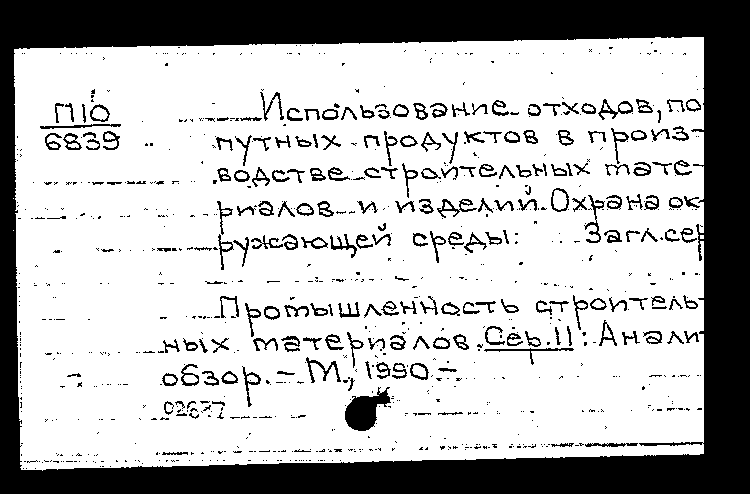 П10
6839
Использование отходов, по
путных продуктов в произ-
водстве строительных мате-
риалов и изделий. Охрана ок-
ружающей среды: Загл.сер
Промышленность строитель-
ных материалов. Сер.11: Анали
обзор. – М., 1990 –